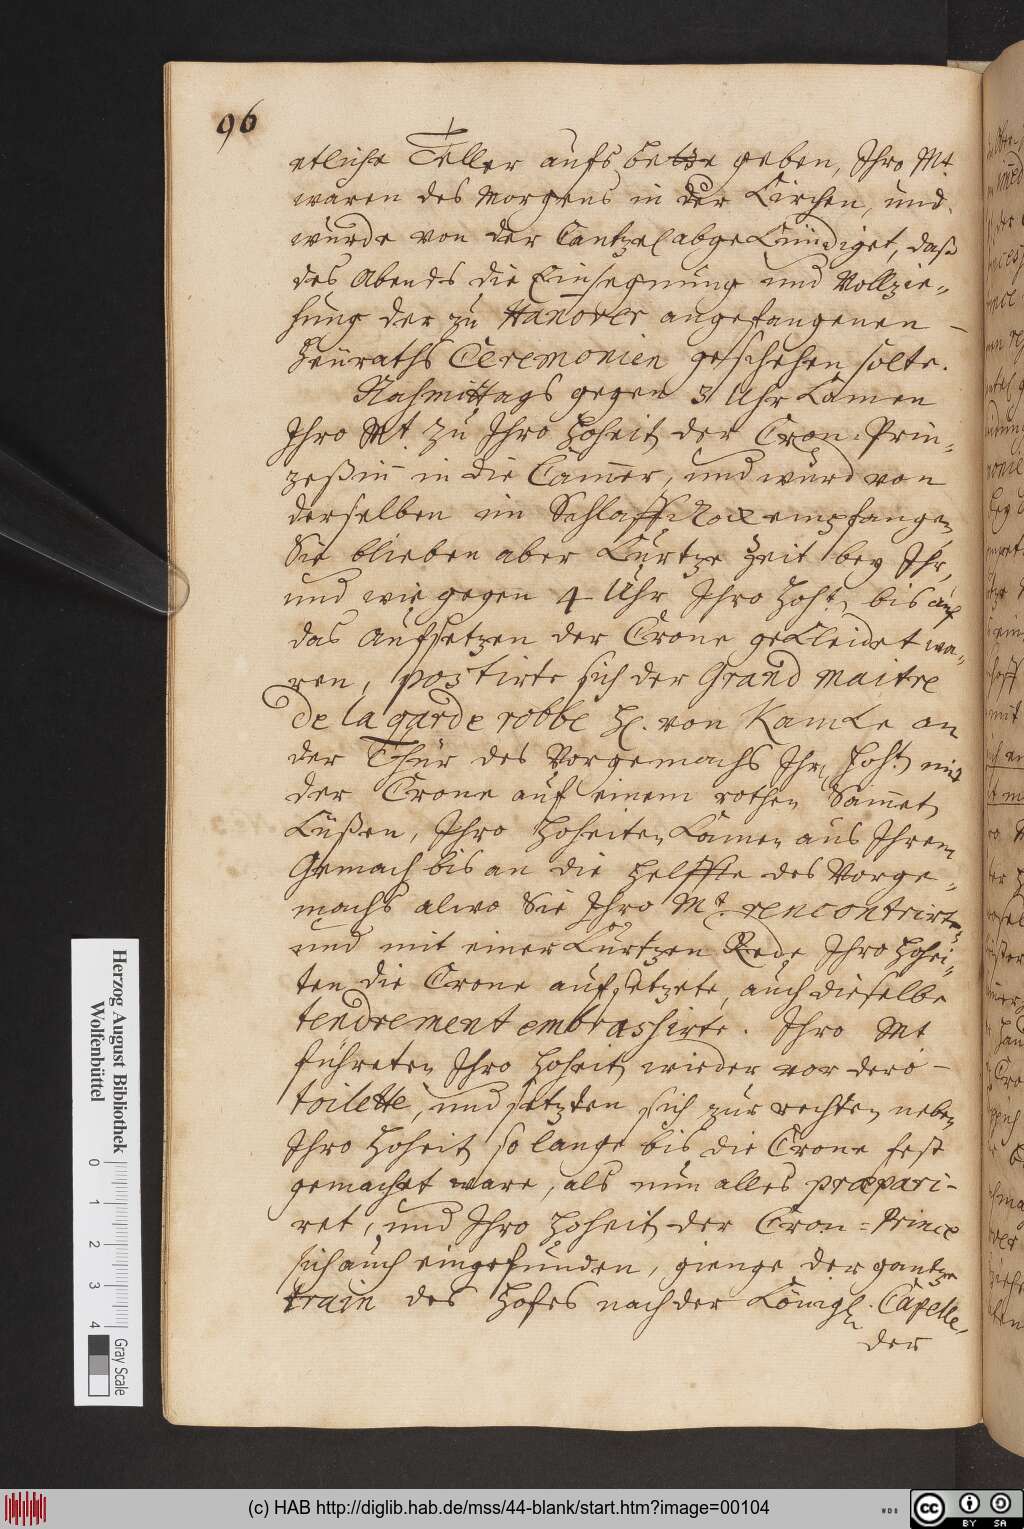 96
etliche Teller aufs bette geben, Ihro Mt.
waren des Morgens in der Kirchen, und
wurde von der Cantzel abgekündiget, daß
des Abends die Einsegnung und Vollzie-
hung der zu Hanover angefangenen
Heuraths Ceremonien geschehen solte.
Nachmittags gegen 3 Uhr kamen
Ihro Mt. zu Ihro Hoheit der Cron-Prin-
zeßin in die Camer, und wurd von
derselben im Schlaff Rock empfangen,
Sie blieben aber kurtze Zeit bey Ihr,
und wie gegen 4 Uhr Ihro Hoht. bis auf
das Aufsetzen der Crone gekleidet wa-
ren, postirte sich der Grand maitre
de la garde robbe H. von Kamke an
der Thür des Vorgemachs Ihr Hoht. mit
der Crone auf einem rothen Samet
Küßen, Ihro Hoheiten kamen aus Ihrem
Gemach bis an die Helffte des Vorge-
machs alwo Sie Ihro Mt. rencontrirten
und mit einer kurtzen Rede Ihro Hohei-
ten die Crone aufsetzete, auch dieselbe
tendrement embrassirte. Ihro Mt
führeten Ihro Hoheit wieder vor dero
toilette, und setzten sich zur rechten neben
Ihro Hoheit so lange bis die Crone fest
gemachet ware, als nun alles præpari-
ret, und Ihro Hoheit der Cron-Prince
sich auch eingefunden, gienge der gantze
train des Hofes nach der Königl. Capelle,
der
Herzog August Bibliothek
Wolfenbüttel
0 1 2 3 4
Gray Scale
(c) HAB http://diglib.hab.de/mss/44-blank/start.htm?image=00104
WDB
cc BY SA